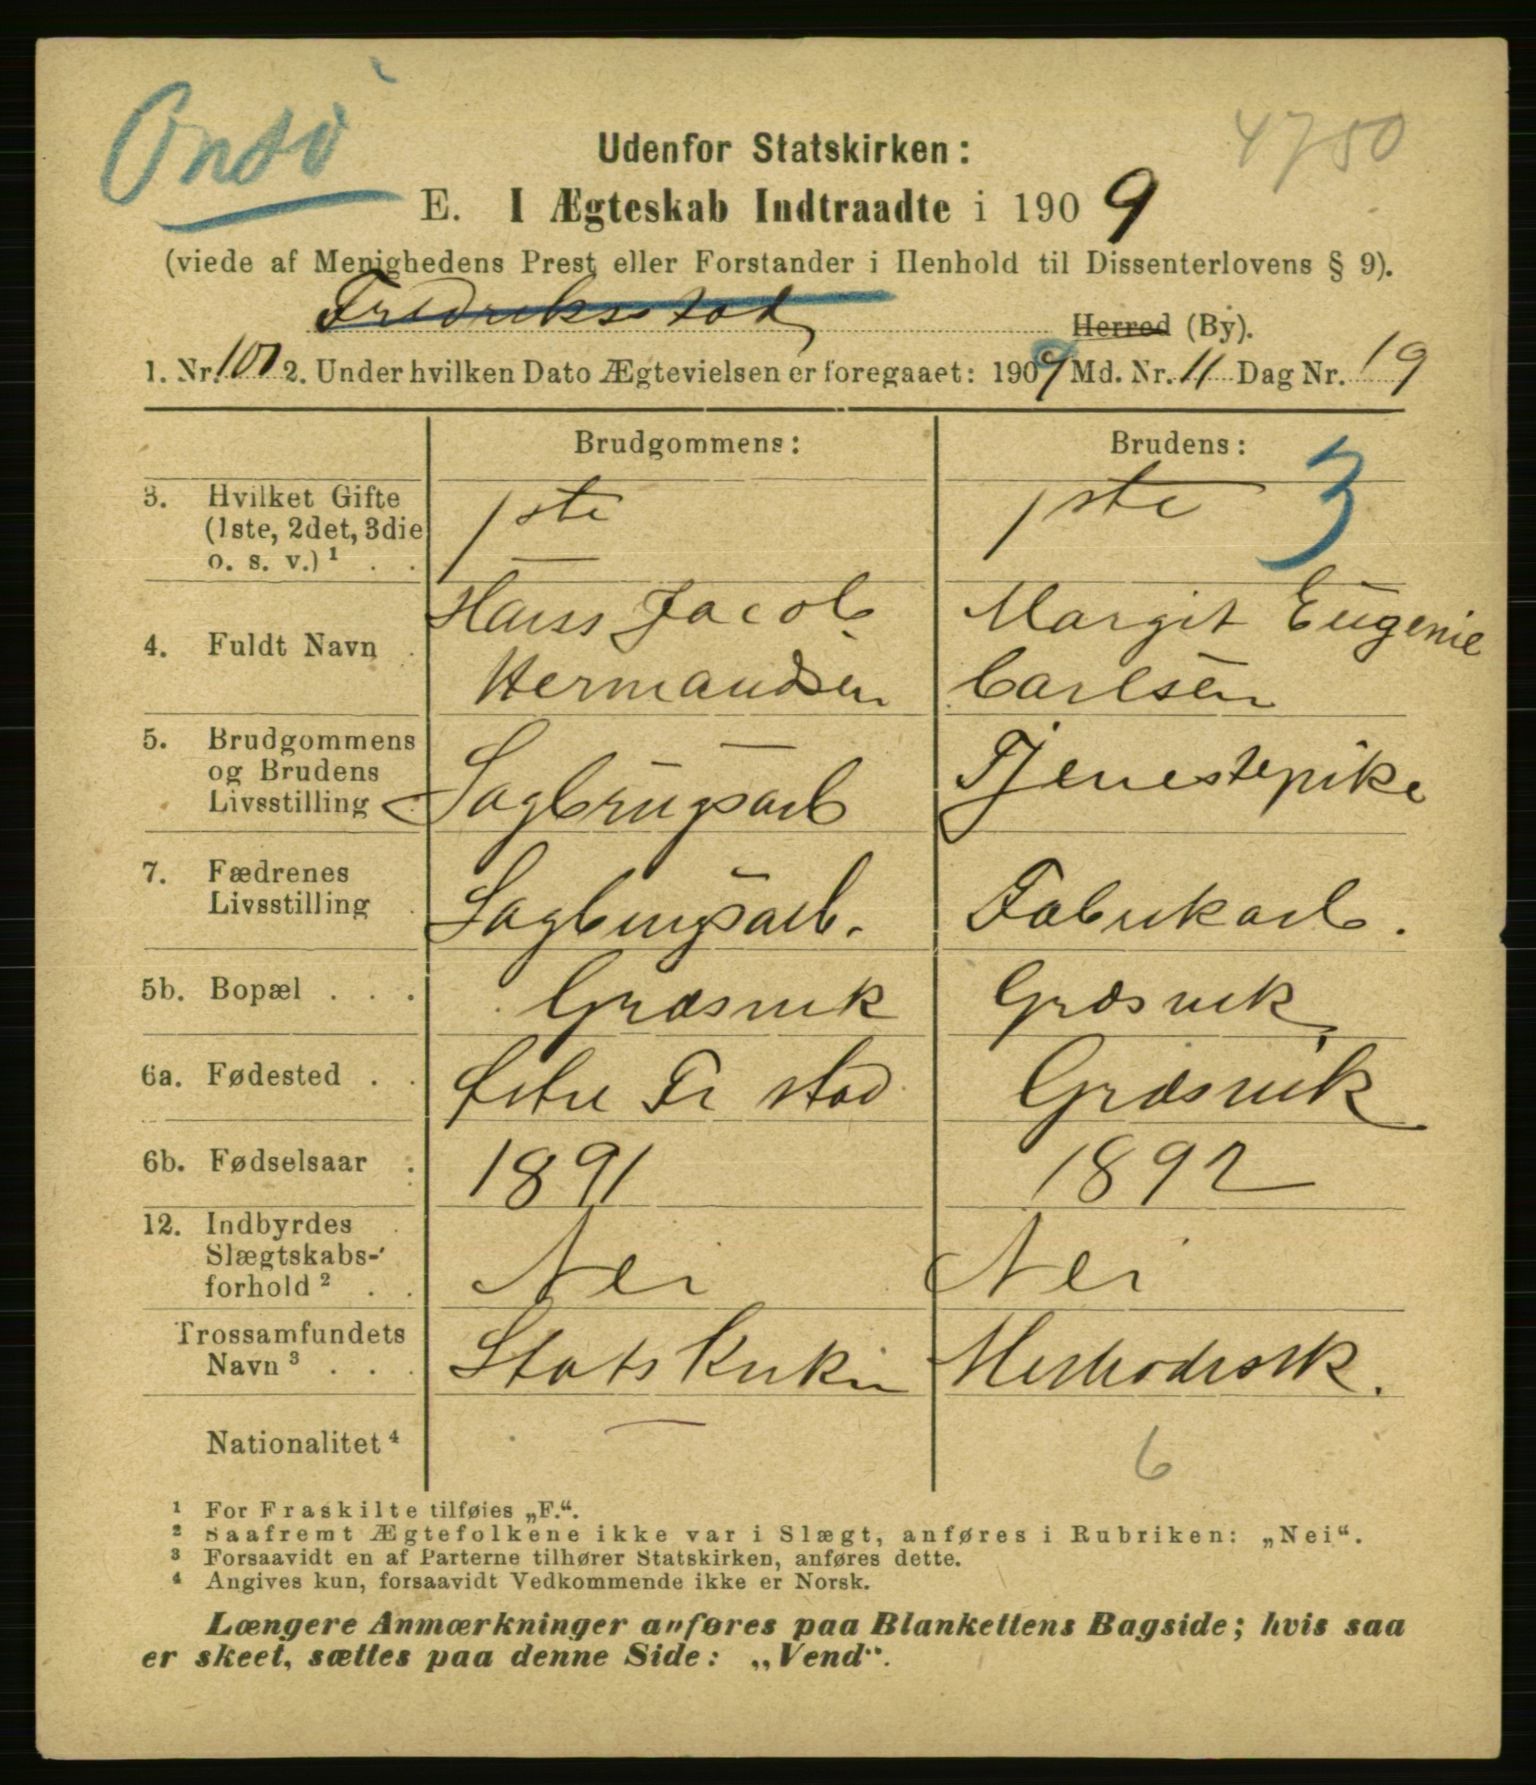 Onsö
4750
Udenfor Statskirken:
E. I Ægteskab Indtraadte i 1909
(viede af Menighedens Prest eller Forstander i Henhold til Dissenterlovens § 9).
Fredriksstad Herred (By).
1. Nr. 101 2. Under hvilken Dato Ægtevielsen er foregaaet: 1909 Md. Nr. 11 Dag Nr. 19
Brudgommens: Brudens:
3
3. Hvilket Gifte (1ste, 2det, 3die o. s. v.) ¹ . . 1ste 1ste
4. Fuldt Navn . Hans Jacob Hermandsen Margit Eugenie Carlsen
5. Brudgommens og Brudens Livsstilling Sagbrugsarb Tjenestepike
7. Fædrenes Livsstilling . Sagbrugsarb. Fabrikarb.
5b. Bopæl . . . Græsvik Græsvik
6a. Fødested . . Østre Fr stad Græsvik
6b. Fødselsaar . 1891 1892
12. Indbyrdes Slægtskabs- forhold ² . . Nei Nei
Trossamfundets Navn ³ . . . Statskirken Methodistk.
Nationalitet ⁴
6
¹ For Fraskilte tilføies „F.“.
² Saafremt Ægtefolkene ikke var i Slægt, anføres i Rubriken: „Nei“.
³ Forsaavidt en af Parterne tilhører Statskirken, anføres dette.
⁴ Angives kun, forsaavidt Vedkommende ikke er Norsk.
Længere Anmærkninger anføres paa Blankettens Bagside; hvis saa
er skeet, sættes paa denne Side: „Vend“.